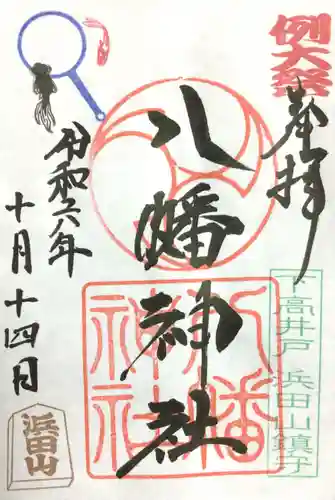 例大祭
奉拝
下高井戸 浜田山鎮守
八幡神社
八幡神社
令和六年
十月十四日
浜田山